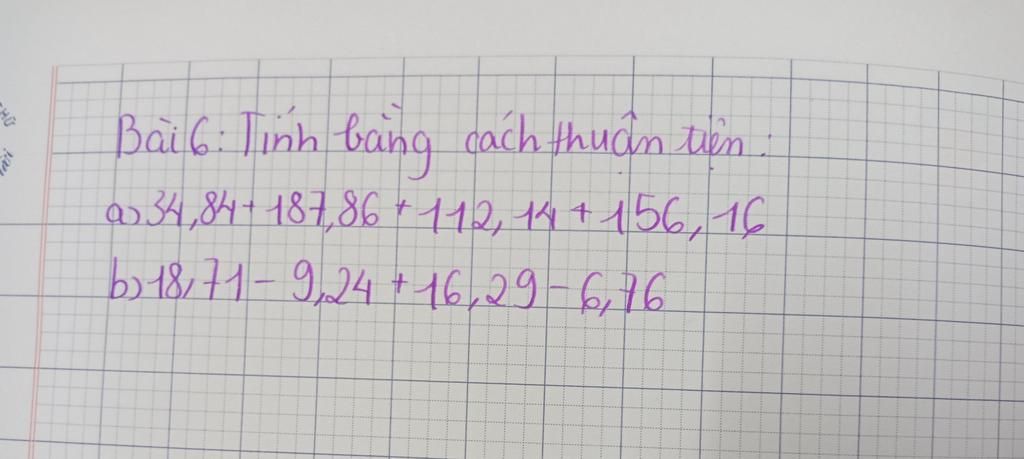 Bài 6: Tính bằng cách thuận tiện:
a) 34,84 + 187,86 + 112,14 + 156,16
b) 18,71 - 9,24 + 16,29 - 6,76